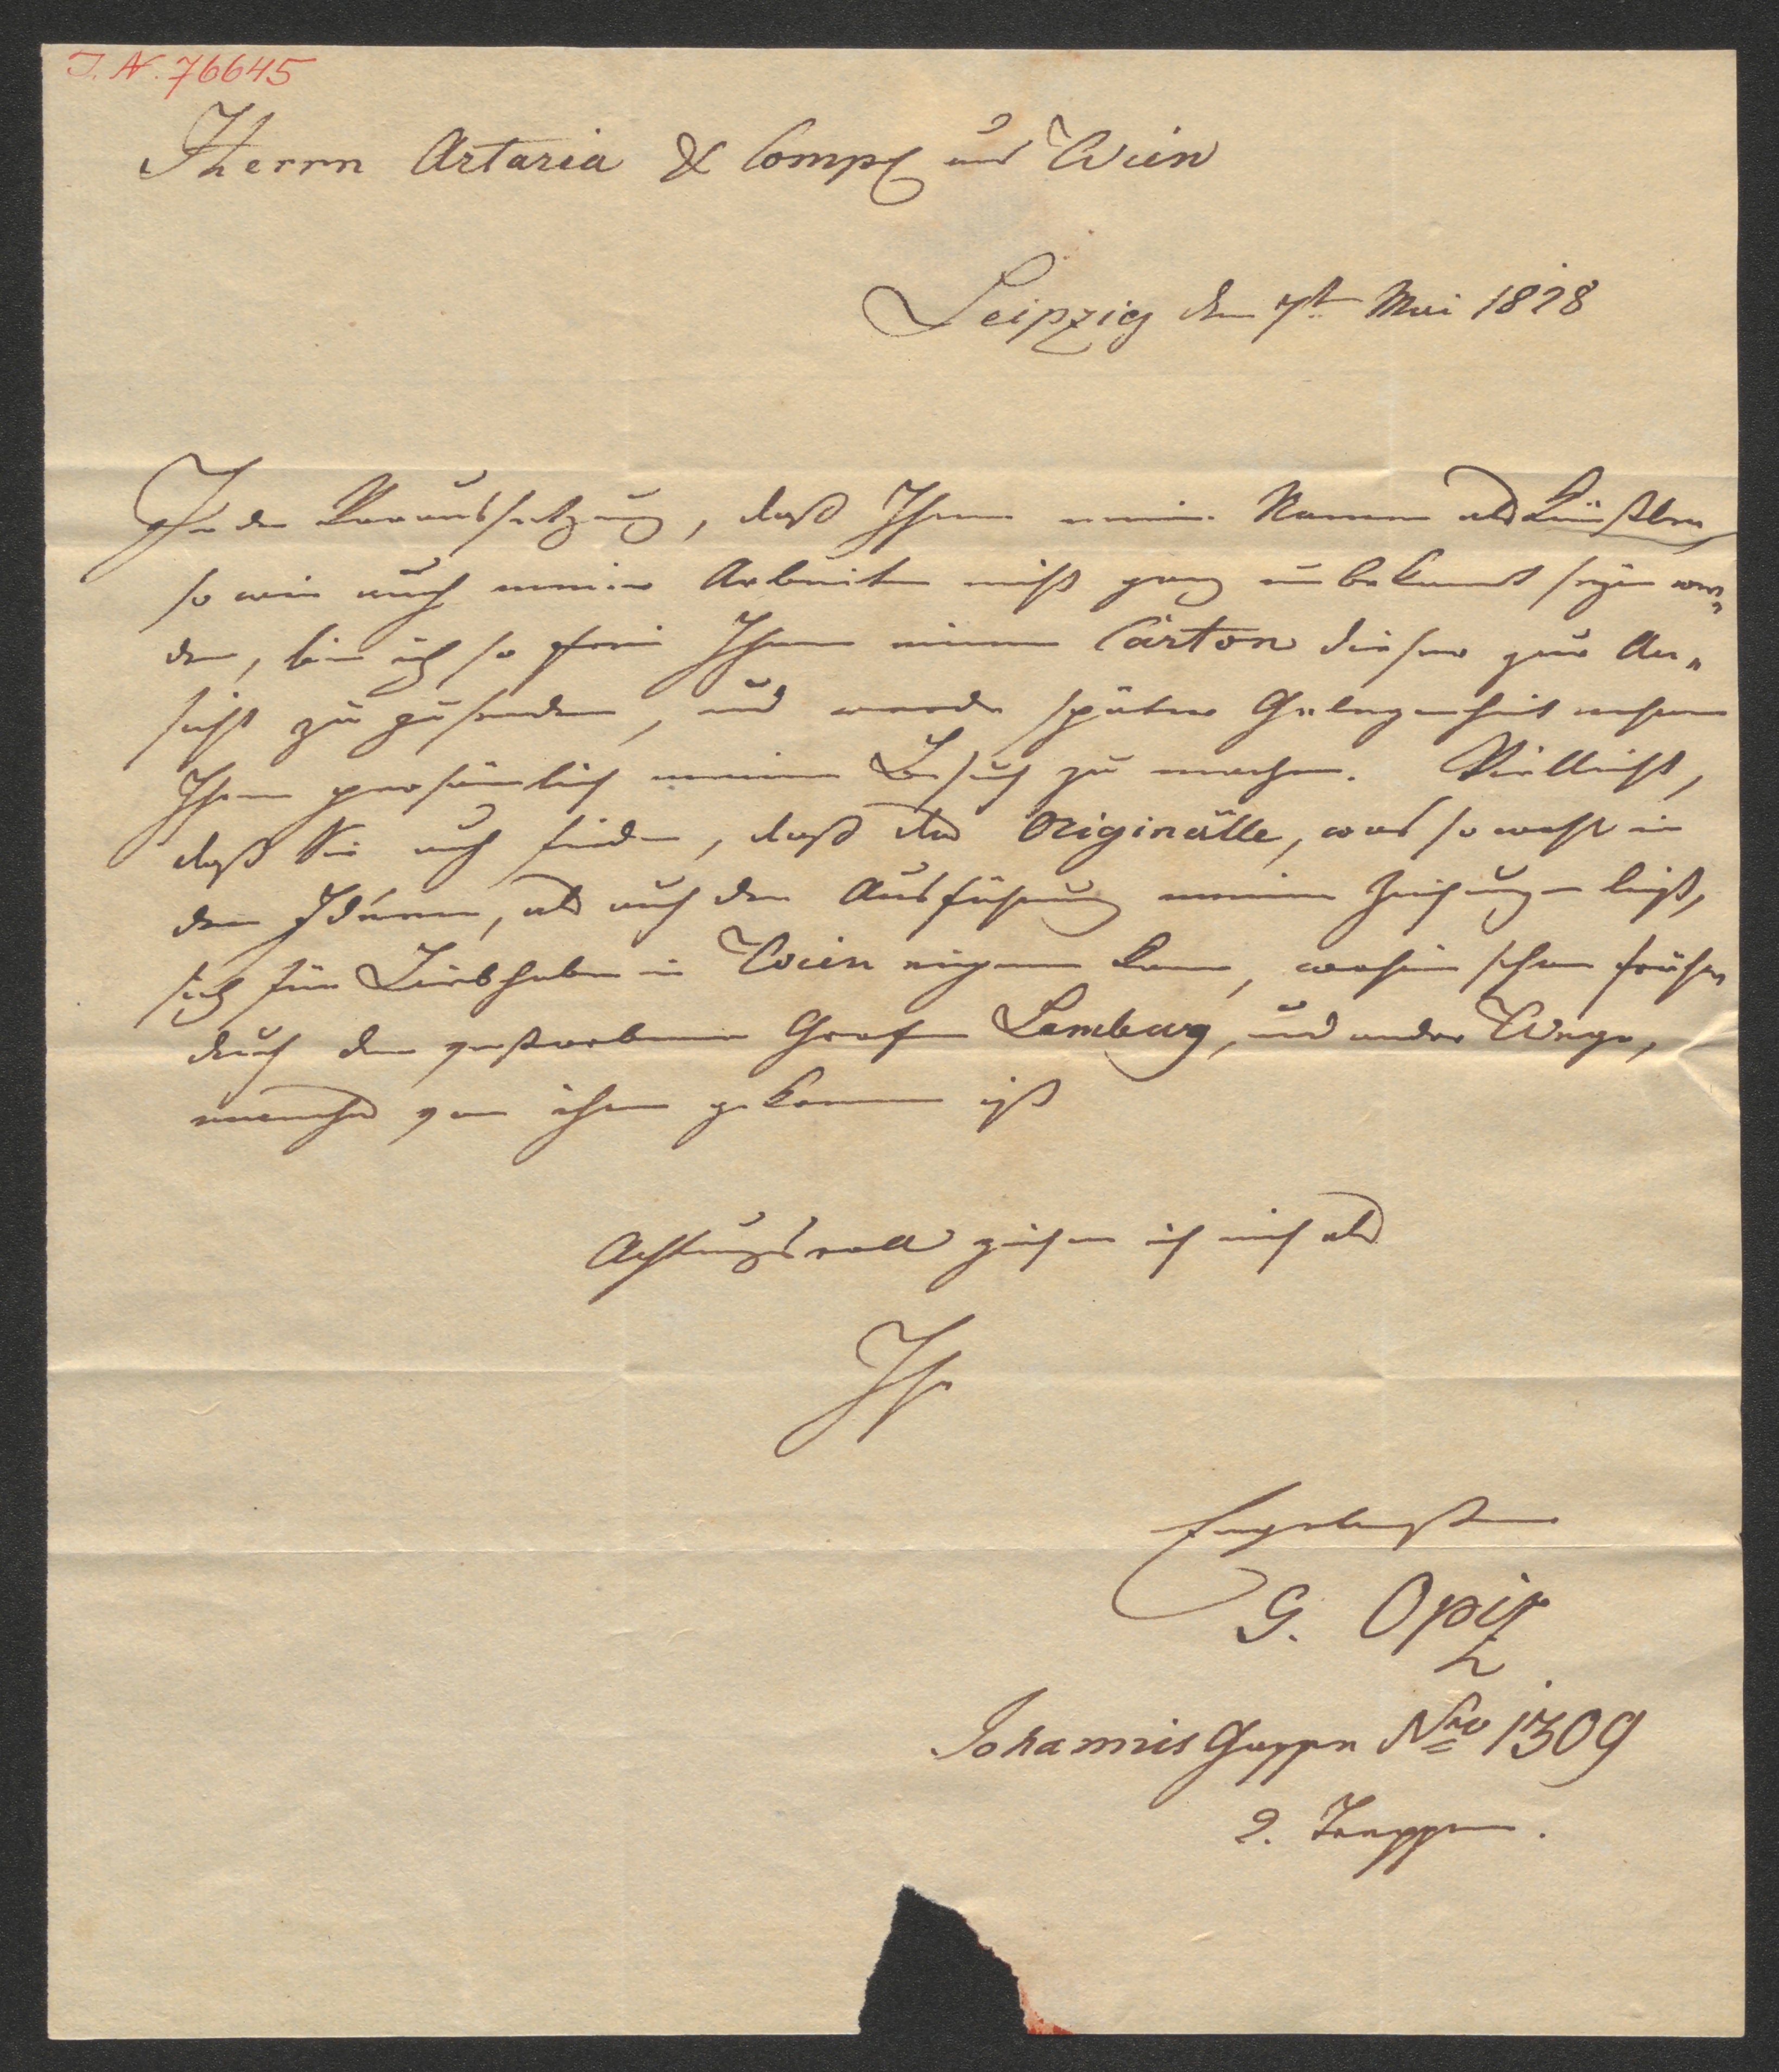 I. N. 76645
Herrn Artaria & Comp aus Wien
Leipzig den 7t Mai 1828
In der Voraussetzung, daß Ihnen mein Namen als Künstler
so wie auch meine Arbeiten nicht ganz unbekannt seyn wer„
den, bin ich so frei Ihnen einen Carton dieser zur An„
sicht zu zusenden, und werde später Gelegenheit nehmen
Ihnen persönlich meinen Besuch zu machen. Vielleicht,
daß Sie auch finden, daß das Originälle, was sowohl in
den Idéeen, als auch der Ausführung meiner Zeichnungen liegt,
sich für Liebhaber in Wien eignen kann, wohin schon früher
durch den verstorbenen Grafen Lamberg, und andre Wege,
manches von ihnen gekommen ist
Achtungsvoll zeichne ich mich als
Ihr
Ergebenster
G. Opiz
Johannis Gasse Nro 1309
2. Treppen.